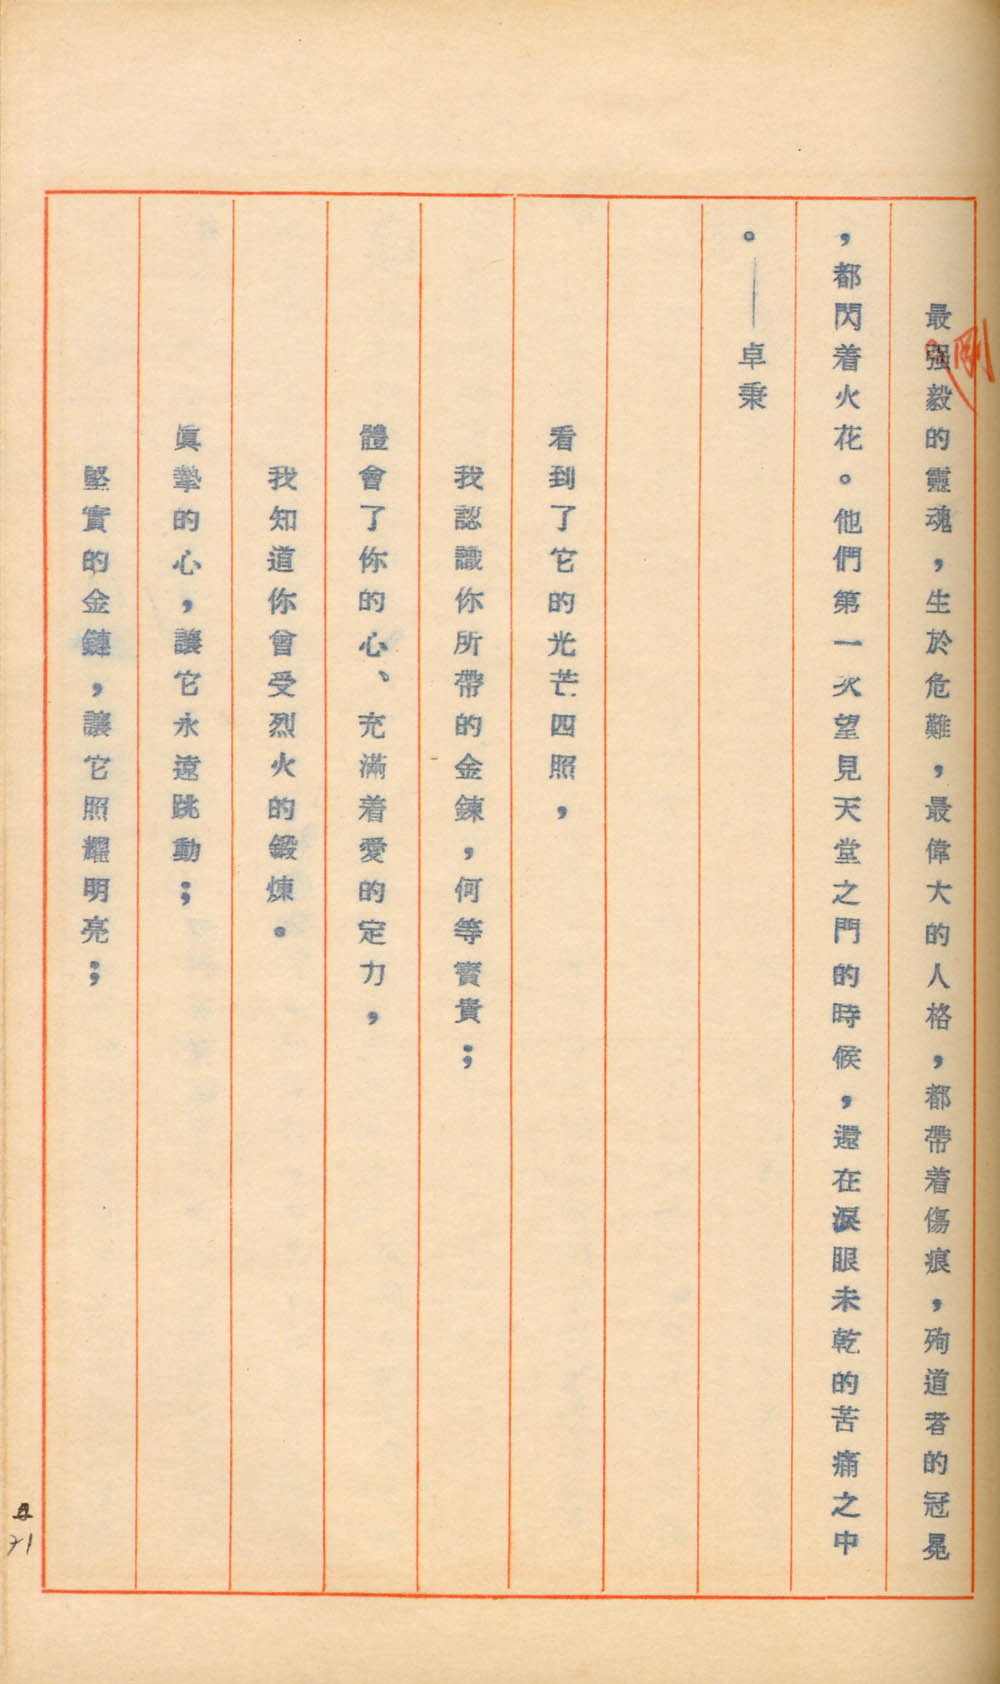 最强毅的靈魂，生於危難，最偉大的人格，都帶着傷痕，殉道者的冠冕
，都閃着火花。他們第一次望見天堂之門的時候，還在淚眼未乾的苦痛之中
。——卓秉
看到了它的光芒四照，
我認識你所帶的金鍊，何等寶貴；
體會了你的心、充滿着愛的定力，
我知道你曾受烈火的鍛煉。
眞摯的心，讓它永遠跳動；
堅實的金鏈，讓它照耀明亮；
剛
71